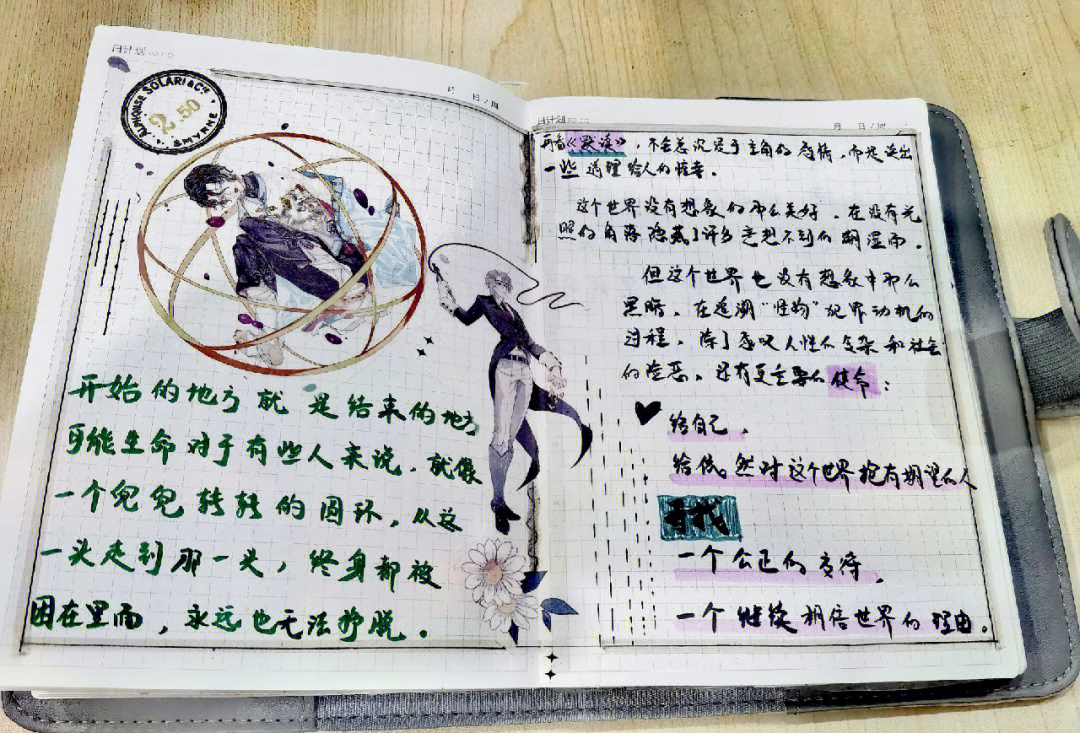 月计划
ALPHONSE SOLARI & CIE
2.50
SMYRNE
月 日/周
开始的地方就是结束的地方
可能生命对于有些人来说，就像
一个兜兜转转的圆环，从这
一头走到那一头，终身都被
困在里面，永远也无法挣脱。
月计划
月 日/周
再看《默读》，不会总沉浸于主角的感情，而是读出
一些道理给人的惊喜。
这个世界没有想象的那么美好，在没有光
照的角落隐藏了许多意想不到的潮湿面。
但这个世界也没有想象中那么
黑暗，在追溯“怪物”犯罪动机的
过程，除了感叹人性的复杂和社会
的险恶，还有更重要的使命：
给自己，
给依然对这个世界抱有期望的人
寻找
一个公正的交待，
一个继续相信世界的理由。